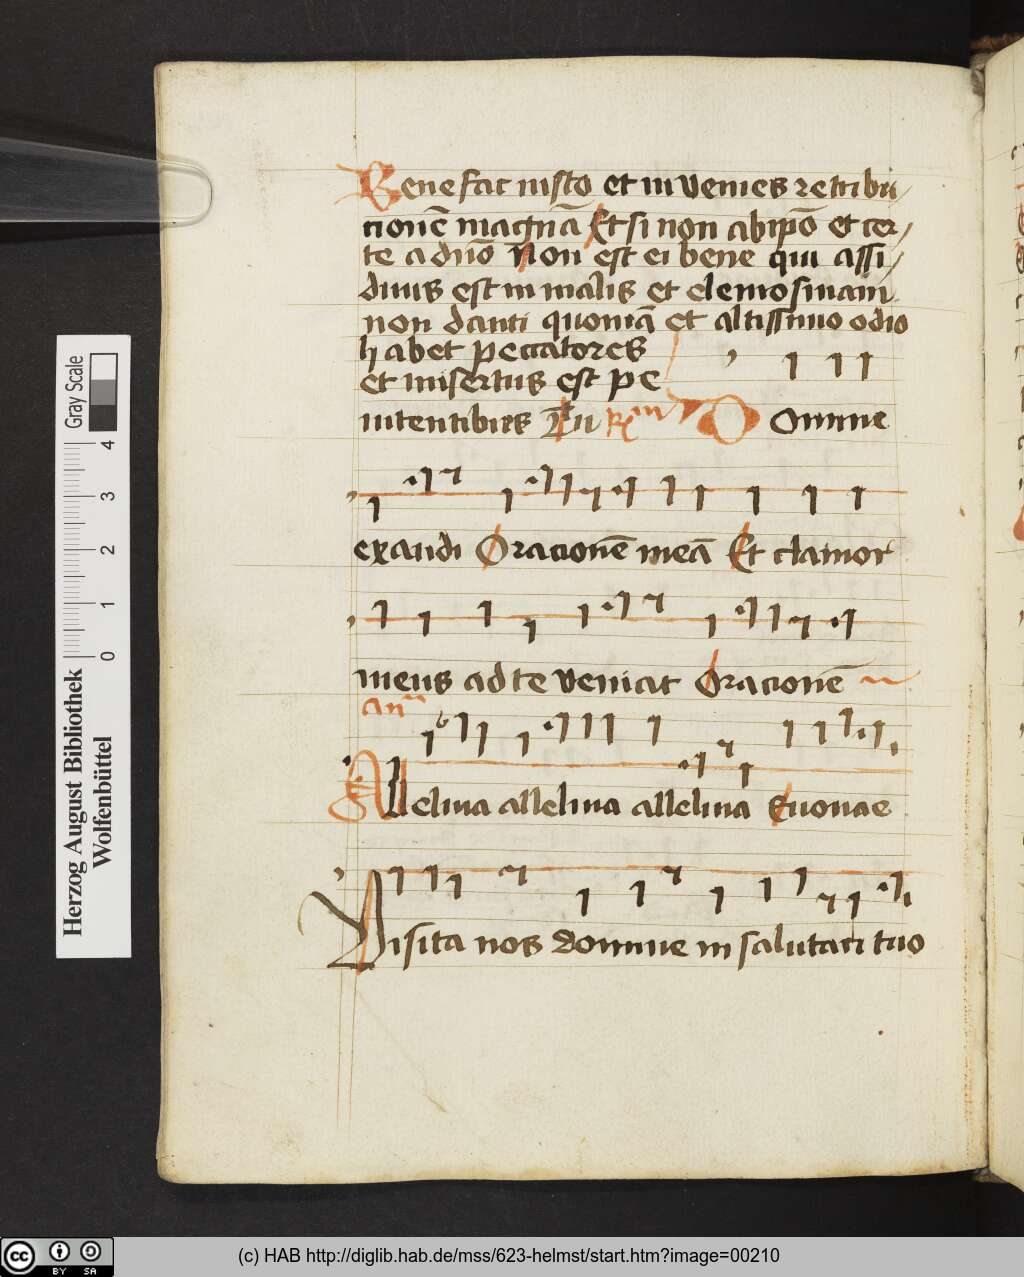 Benefac iusto et invenies retribu/
cionē magnā Et si non ab ipō et cer/
te a dnō Non est ei bene qui assi/
duus est in malis et elemosinam
non danti quoniā et altissimo odio
habet peccatores
et misertus est pe
nitentibus Tu Rm Domine
exaudi Oracionē meā Et clamor
meus ad te veniat Oracionē
an
Alleluia alleluia alleluia Evovae
Visita nos domine in salutari tuo
Gray Scale
4
3
2
1
0
Herzog August Bibliothek
Wolfenbüttel
cc BY SA
(c) HAB http://diglib.hab.de/mss/623-helmst/start.htm?image=00210